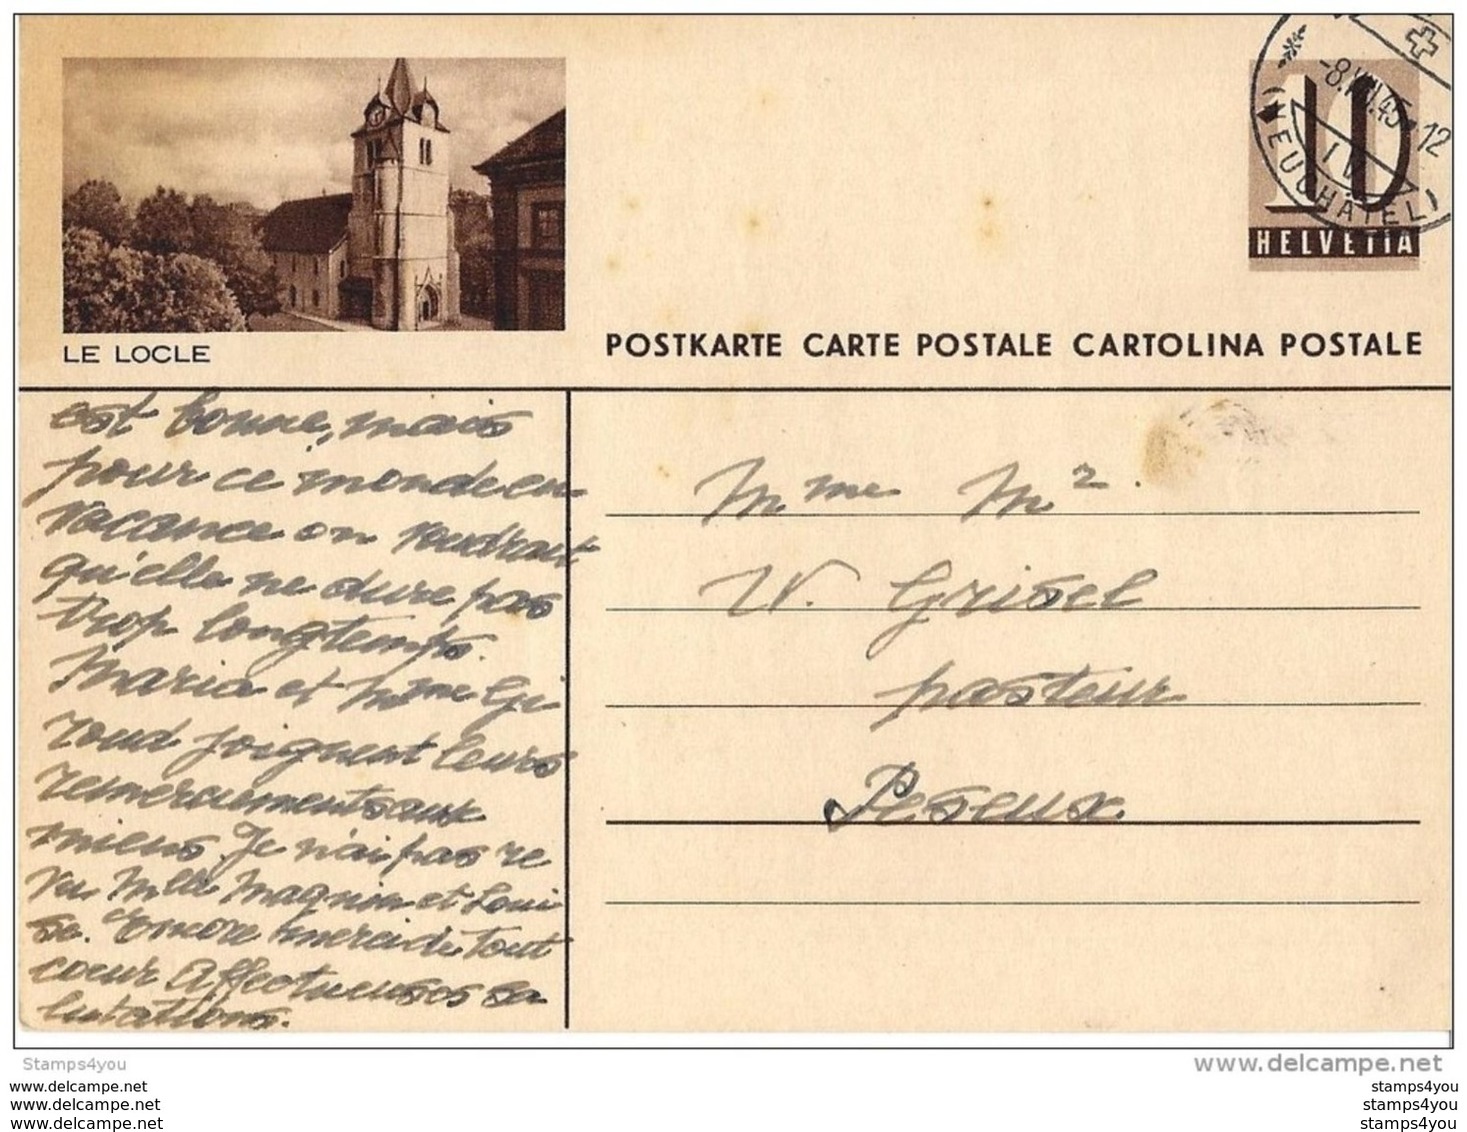 LE LOCLE
-8.VIII.45.-12
IV
(NEUCHÂTEL)
10
HELVETIA
POSTKARTE CARTE POSTALE CARTOLINA POSTALE
est bonne, mais
pour ce monde en
vacance on voudrait
qu'elle ne dure pas
trop longtemps.
Maria et Mme Gi
roud joignent leurs
remerciements aux
miens. Je n'ai pas re
vu Mlle Magnin et Loui
se. Encore merci de tout
coeur Affectueuses sa
lutations.
Mme M
W. Grisel
pasteur
Peseux.
Stamps4you
www.delcampe.net
www.delcampe.net
www.delcampe.net
www.delcampe.net
stamps4you
stamps4you
stamps4you